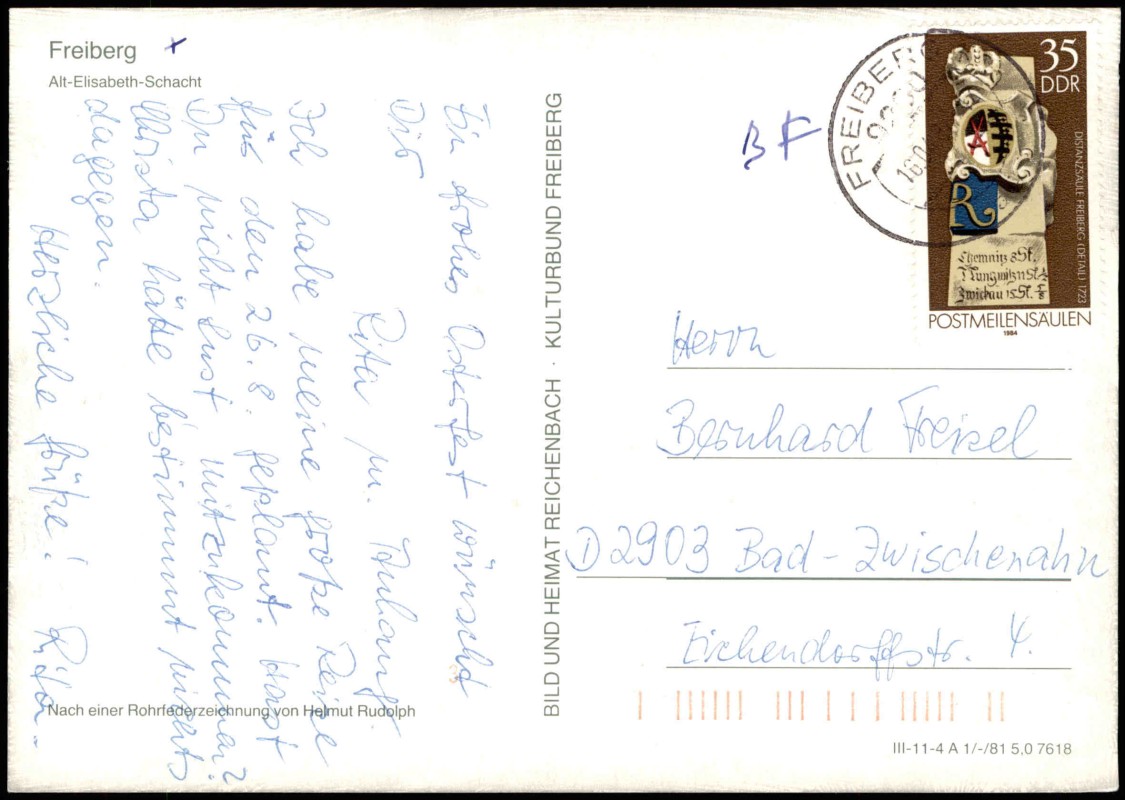 Freiberg +
Alt-Elisabeth-Schacht
Ein frohes Osterfest wünscht
Dir
Rita m. Anhang.
Ich habe meine große Reise
für den 26.8. geplant. Hast
Du nicht Lust mitzukommen?
Christa hätte bestimmt nichts
dagegen.
Herzliche Grüße! Rita.
Nach einer Rohrfederzeichnung von Helmut Rudolph
BILD UND HEIMAT REICHENBACH · KULTURBUND FREIBERG
BF
FREIBERG
35
DDR
DISTANZSÄULE FREIBERG (DETAIL) 1723
R
Chemnitz 8 St.
Zwickau 15 St. 5/8
POSTMEILENSÄULEN
1984
Herrn
Bernhard Freisel
D 2903 Bad-Zwischenahn
Eichendorffstr. 4.
III-11-4 A 1/-/81 5,0 7618